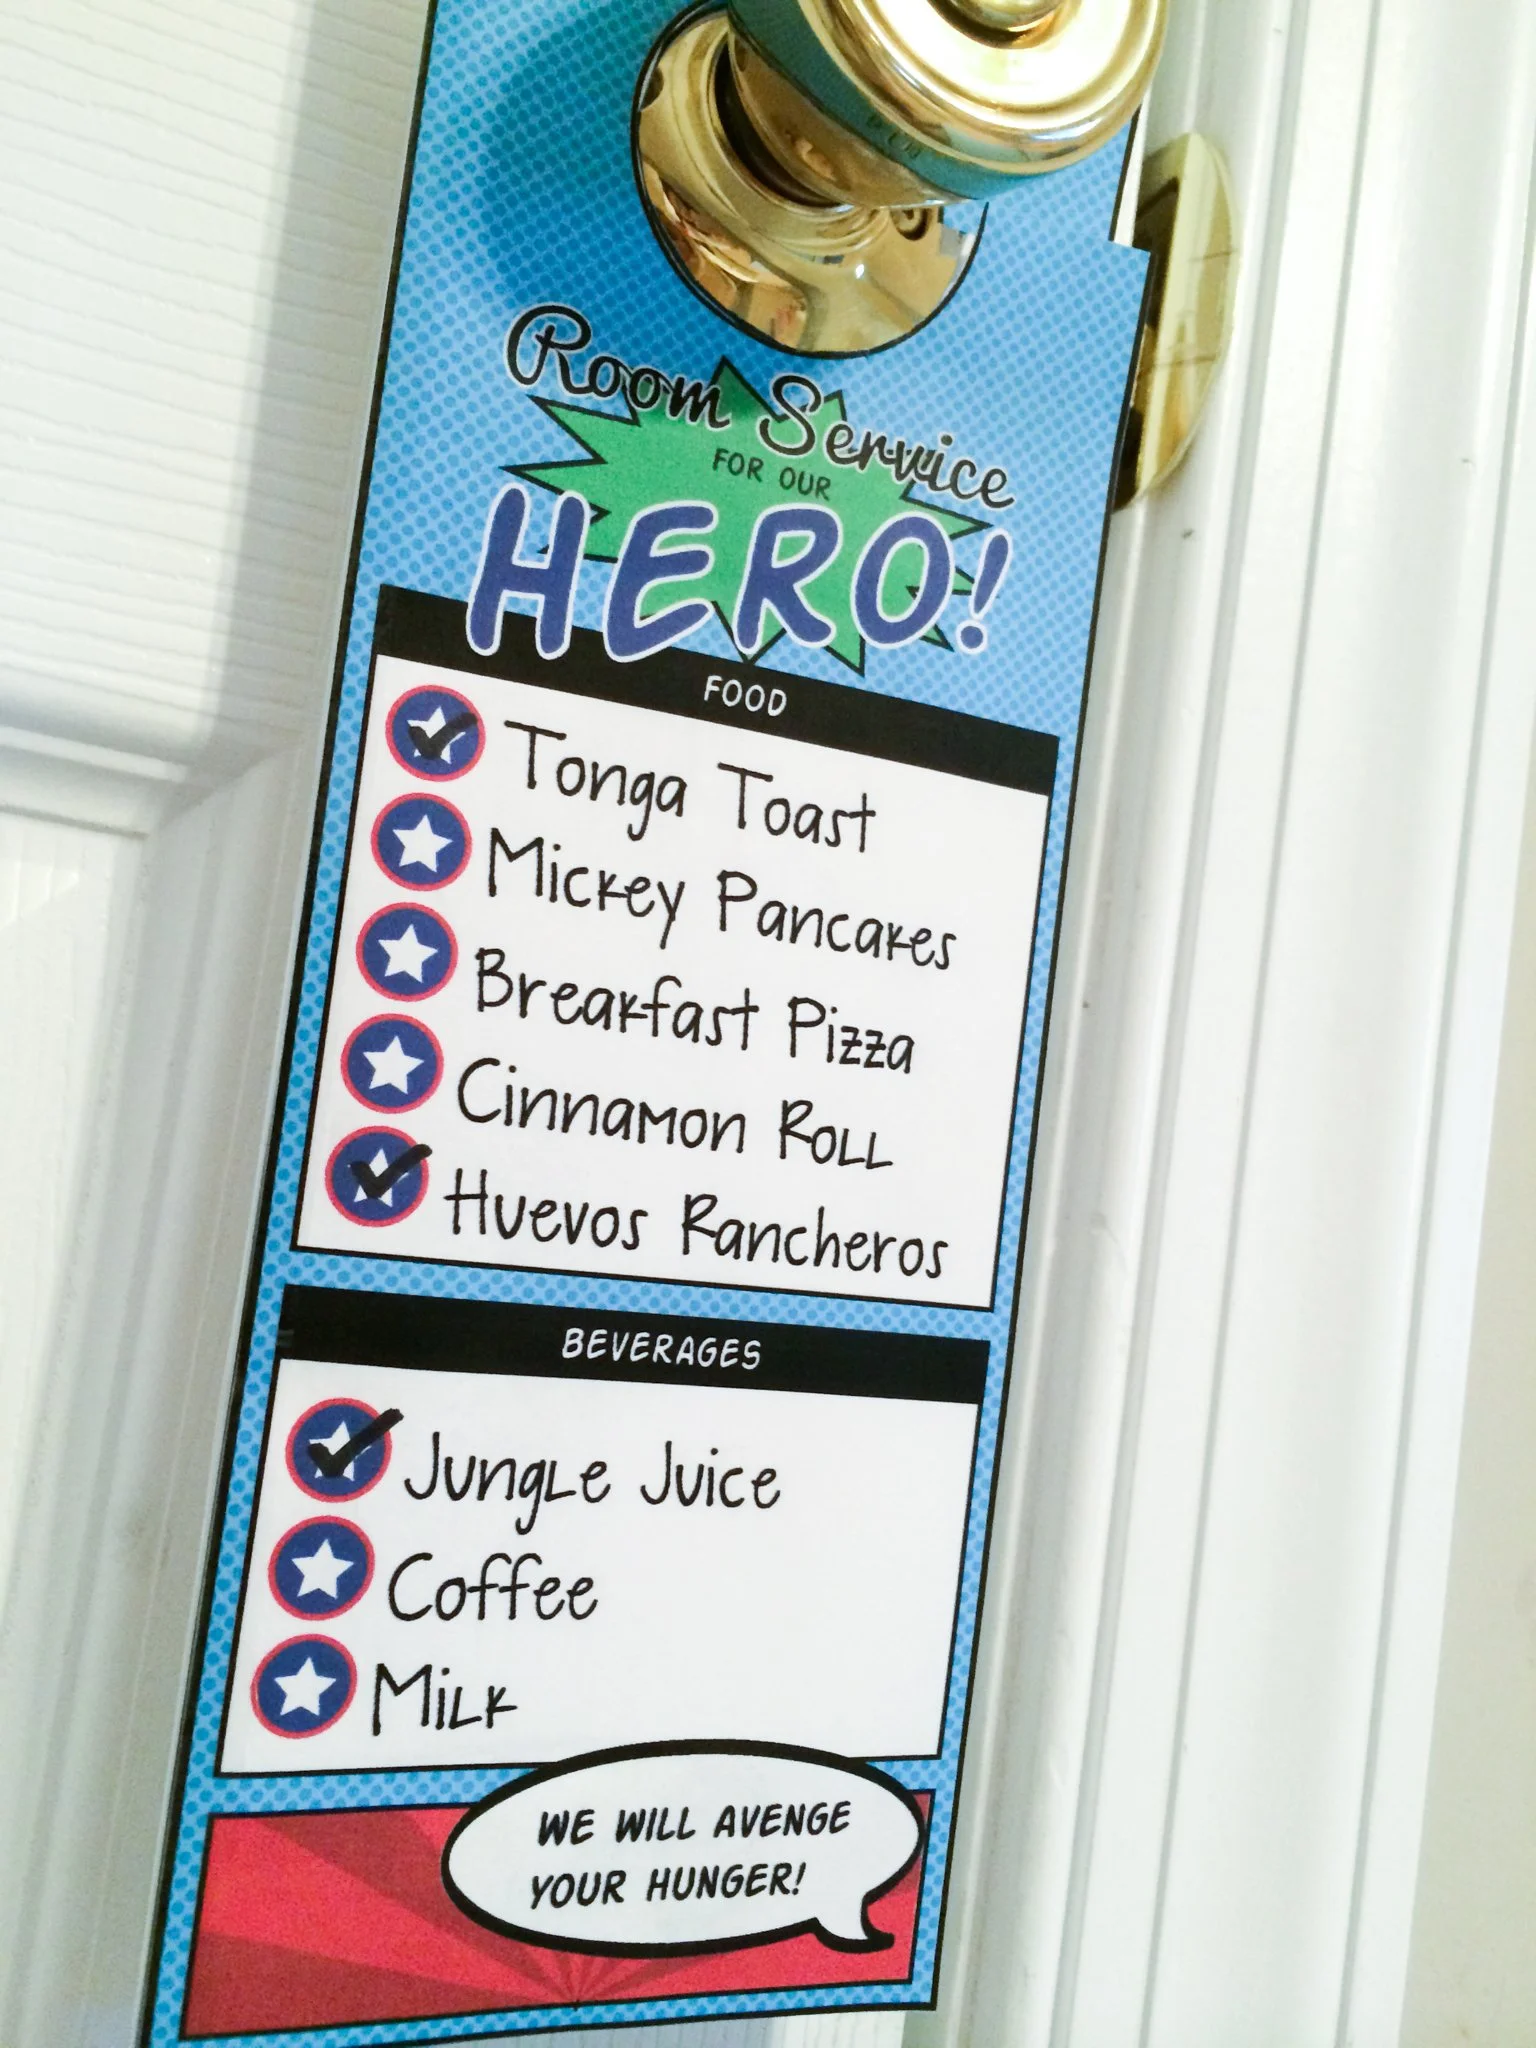 Room Service
FOR OUR
HERO!
FOOD
Tonga Toast
Mickey Pancakes
Breakfast Pizza
Cinnamon Roll
Huevos Rancheros
BEVERAGES
Jungle Juice
Coffee
Milk
WE WILL AVENGE
YOUR HUNGER!